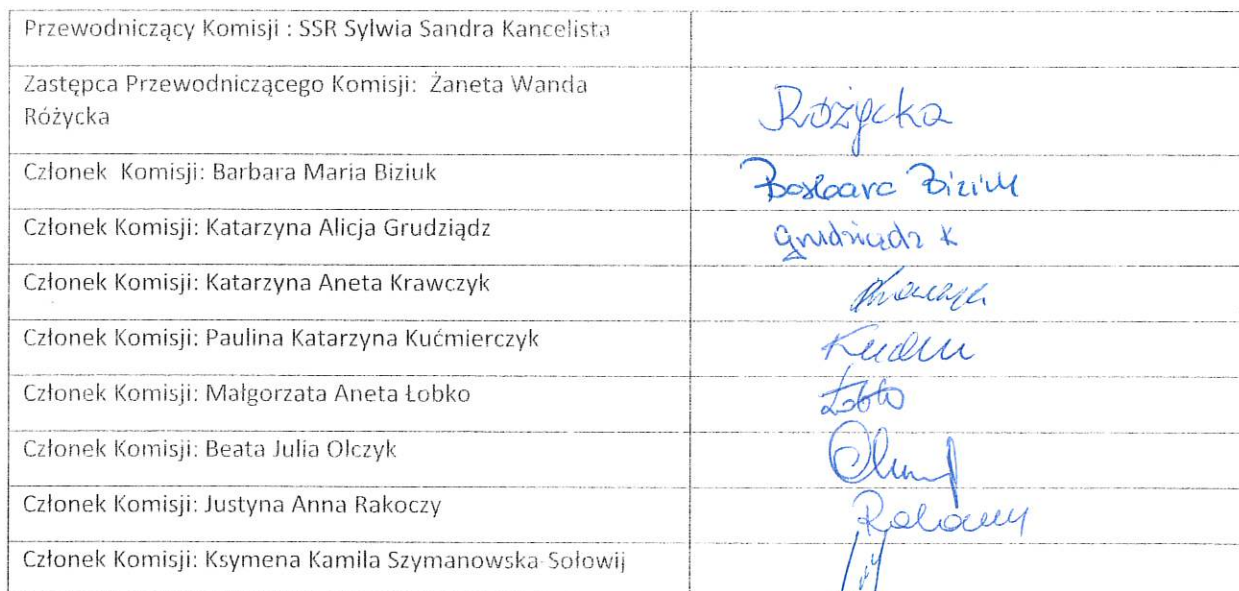 Przewodniczący Komisji : SSR Sylwia Sandra Kancelista
Zastępca Przewodniczącego Komisji: Żaneta Wanda
Różycka
Różycka
Członek Komisji: Barbara Maria Biziuk
Barbara Biziuk
Członek Komisji: Katarzyna Alicja Grudziądz
Grudziądz K
Członek Komisji: Katarzyna Aneta Krawczyk
Członek Komisji: Paulina Katarzyna Kućmierczyk
Członek Komisji: Małgorzata Aneta Łobko
Łobko
Członek Komisji: Beata Julia Olczyk
Członek Komisji: Justyna Anna Rakoczy
Rakoczy
Członek Komisji: Ksymena Kamila Szymanowska-Sołowij